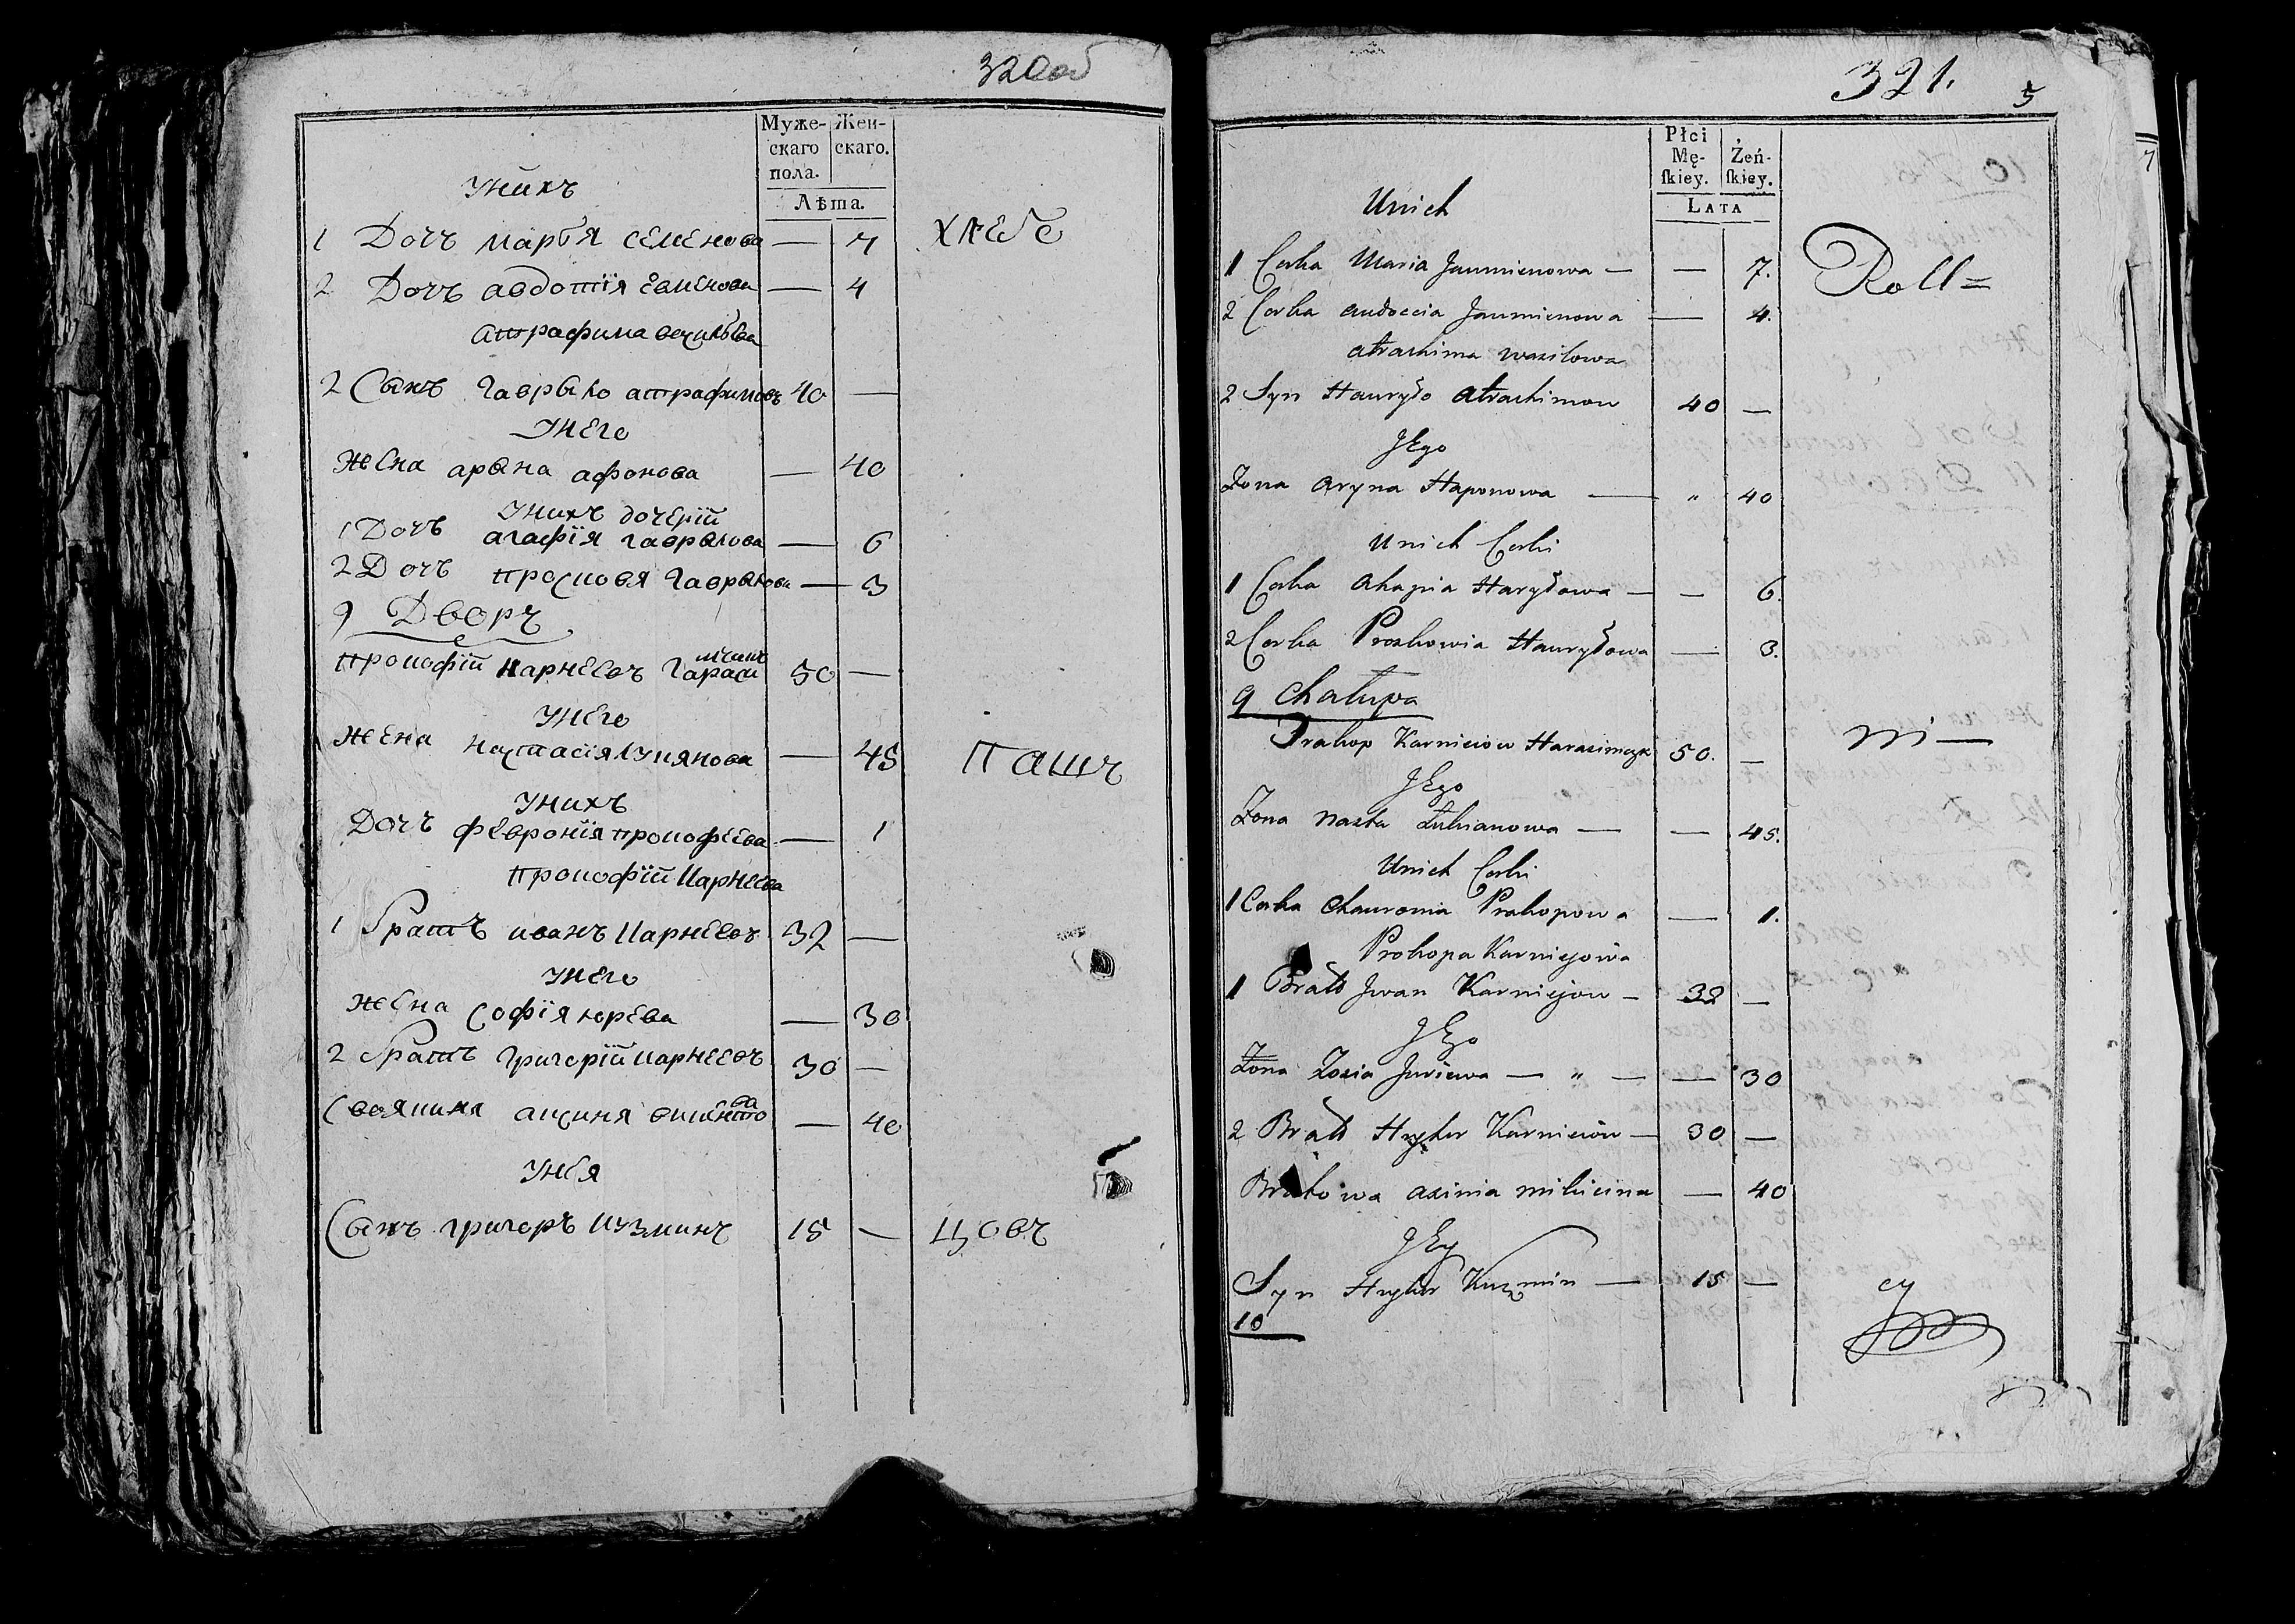 320об
Муже-
скаго
пола.
Жен-
скаго.
Лѣта.
Унихъ
1 Дочь марья семенова — 7
хлебо
2 Дочь авдотія Евменова — 4
атрафима василева
2 Сынъ гаврыло атрафимовъ 40 —
Унего
жена арына афонова — 40
Унихъ дочерій
1 Дочь агафія гаврылова — 6
2 Дочь просковя гаврылова — 3
9 Дворъ
прокофій карнеевъ Гарасимчикъ 50 —
Унего
жена настасія лукянова — 45
пашъ
Унихъ
Дочь февронія прокофеева — 1
прокофій карнеева
1 братъ иванъ карнеевъ 32 —
Унего
жена софія юрева — 30
2 братъ григорій карнеевъ 30 —
своякиня аксиня — 40
Унея
Сынъ григоръ кузминъ 15 —
цовъ
321.
5
Płci
Mę-
ſkiey.
Żeń-
ſkiey.
LATA
Unich
1 Corka Maria Jaumienowa — — 7.
Roll=
2 Corka audoccia Jaumienowa — 4.
atrachima wasilowa
2 Syn Hauryło atrachimow 40 —
JEgo
Żona aryna Haponowa — " 40
Unich Corki
1 Corka ahapia Haryłowa — — 6.
2 Corka Proskowia Hauryłowa — 3.
9 Chałupa
Prakop Karnieiow Harasimczyk 50. —
ni —
JEgo
Żona nasta Łukianowa — — 45.
Unich Corki
1 Corka Chauronia Prakopowa — 1.
Prokopa Karniejowa
1 Brat Jwan Karniejow — 32 —
JEgo
Żona Zosia Juriewa — " — — 30
2 Brat Hryhor Karnieiow — 30 —
Bratowa axinia mikicina — 40
JEy
Syn Hryhor Kuzmin — 15 —
cy
10